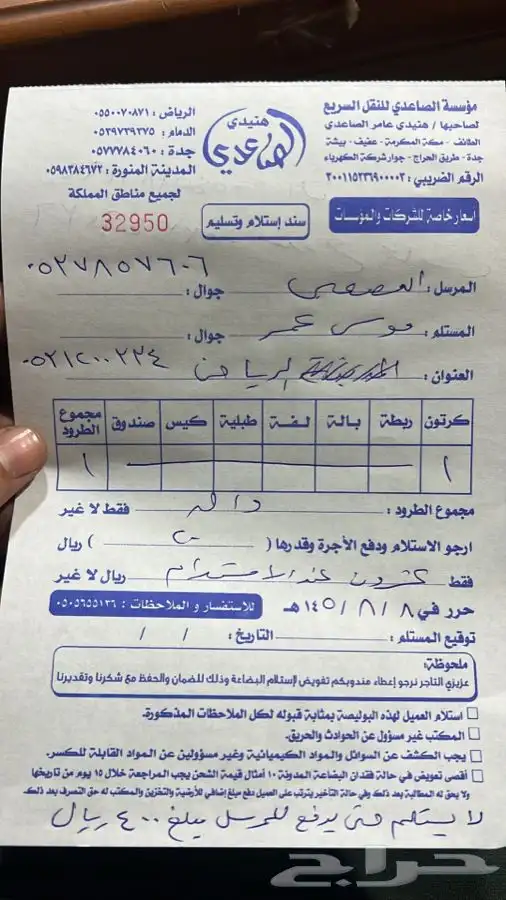 مؤسسة الصاعدي للنقل السريع
لصاحبها / هنيدي عامر الصاعدي
الطائف - مكة المكرمة - عفيف - بيشة
جدة - طريق الحراج - جوار شركة الكهرباء
الرقم الضريبي : ٣٠٠١١٥٢٣٦٩٠٠٠٠٣
أسعار خاصة للشركات والمؤسسات
هنيدي
الصاعدي
سند إستلام وتسليم
الرياض : ٠٥٥٠٠٧٠٨٧١
الدمام : ٠٥٣٩٧٣٩٢٧٥
جدة : ٠٥٧٧٧٨٤٠٦٠
المدينة المنورة : ٠٥٩٨٣٨٤٦٧٢
لجميع مناطق المملكة
32950
المرسل : جوال : ٠٥٢٧٨٥٧٦٠٦
المستلم : موسى عمر جوال :
العنوان : الرياض ٠٥٣١٢٠٠٢٢٤
كرتون ربطة بالة لفة طبلية كيس صندوق مجموع الطرود
١ ١
مجموع الطرود : فقط لا غير
ارجو الاستلام ودفع الأجرة وقدرها ( ٢٠ ) ريال
فقط عشرون عند الاستلام ريال لا غير
حرر في ٨ / ٨ / ١٤٥١هـ للاستفسار و الملاحظات : ٠٥٠٥٦٥٥١٣٦
توقيع المستلم : التاريخ : / /
ملحوظة:
عزيزي التاجر نرجو إعطاء مندوبكم تفويض لإستلام البضاعة وذلك للضمان والحفظ مع شكرنا وتقديرنا
استلام العميل لهذه البوليصة بمثابة قبوله لكل الملاحظات المذكورة.
المكتب غير مسؤول عن الحوادث والحريق.
يجب الكشف عن السوائل والمواد الكيميائية وغير مسؤولين عن المواد القابلة للكسر.
أقصى تعويض في حالة فقدان البضاعة المدونة ١٠ أمثال قيمة الشحن يجب المراجعة خلال ١٥ يوم من تاريخها
ولا يحق له المطالبة بعد ذلك وفي حالة التأخير يترتب على العميل دفع مبلغ إضافي للأرضية والتخزين والمكتب له حق التصرف بعد ذلك.
لا يستلم حتى يدفع للمرسل مبلغ ٤٠٠ ريال
حراج